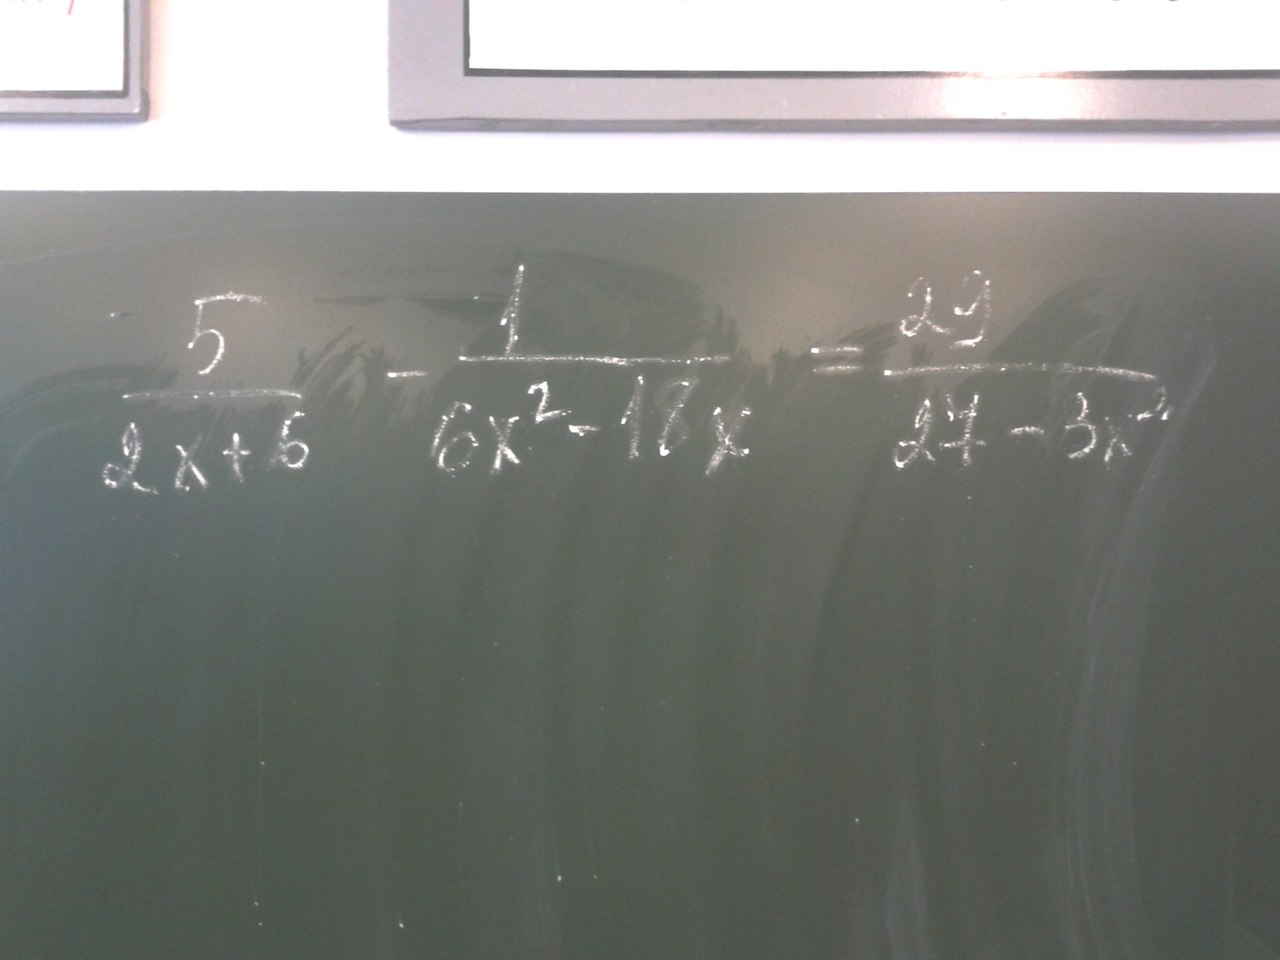 5/(2x+6) - 1/(6x²-18x) = 29/(27-3x²)